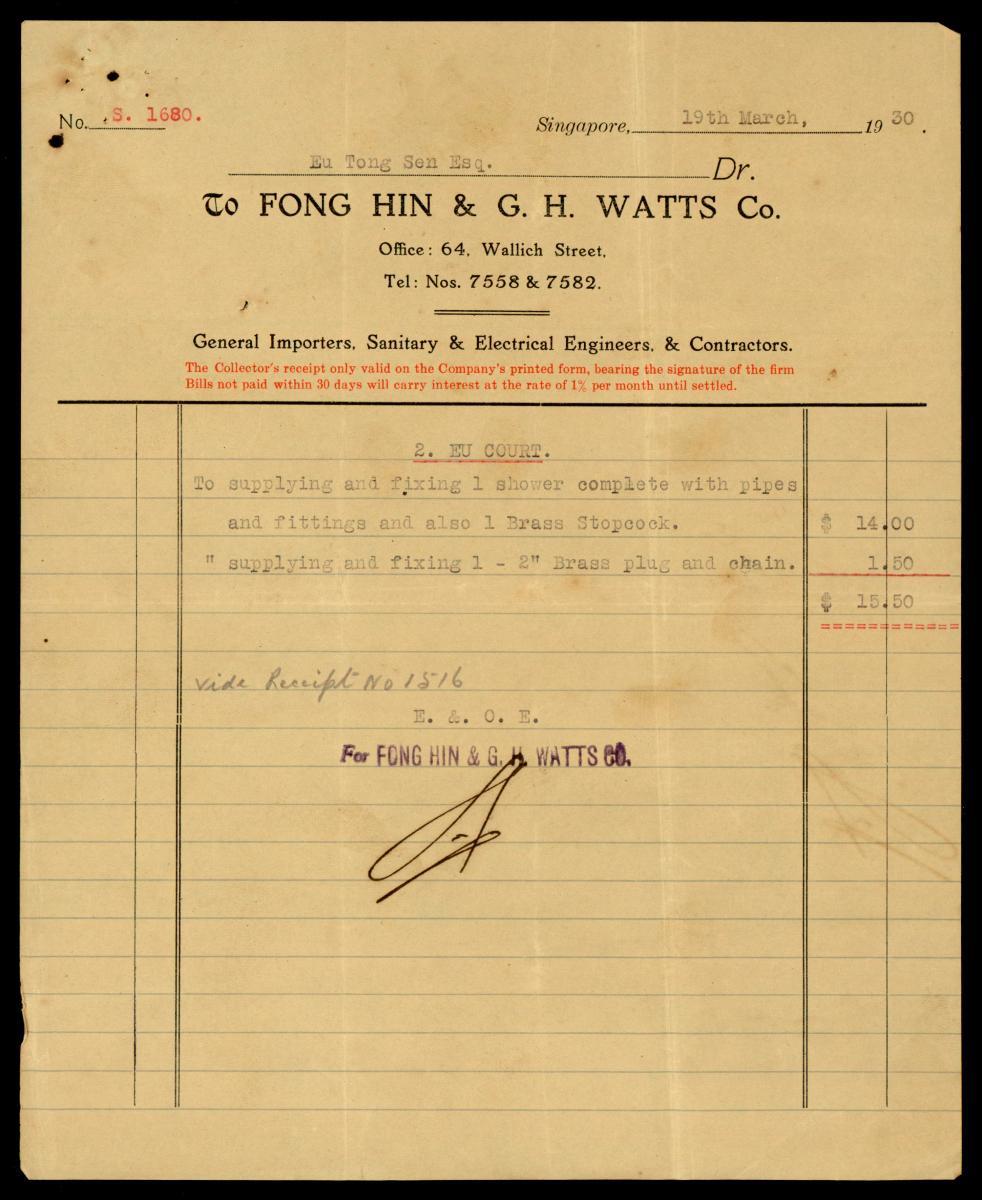 No. S. 1680.
Singapore, 19th March, 1930.
Eu Tong Sen Esq. Dr.
To FONG HIN & G. H. WATTS Co.
Office: 64, Wallich Street,
Tel: Nos. 7558 & 7582.
General Importers, Sanitary & Electrical Engineers, & Contractors.
The Collector's receipt only valid on the Company's printed form, bearing the signature of the firm
Bills not paid within 30 days will carry interest at the rate of 1% per month until settled.
2. EU COURT.
To supplying and fixing 1 shower complete with pipes
and fittings and also 1 Brass Stopcock. $ 14.00
" supplying and fixing 1 - 2" Brass plug and chain. 1.50
$ 15.50
============
Vide Receipt No 1516
E. &. O. E.
For FONG HIN & G. H. WATTS CO.